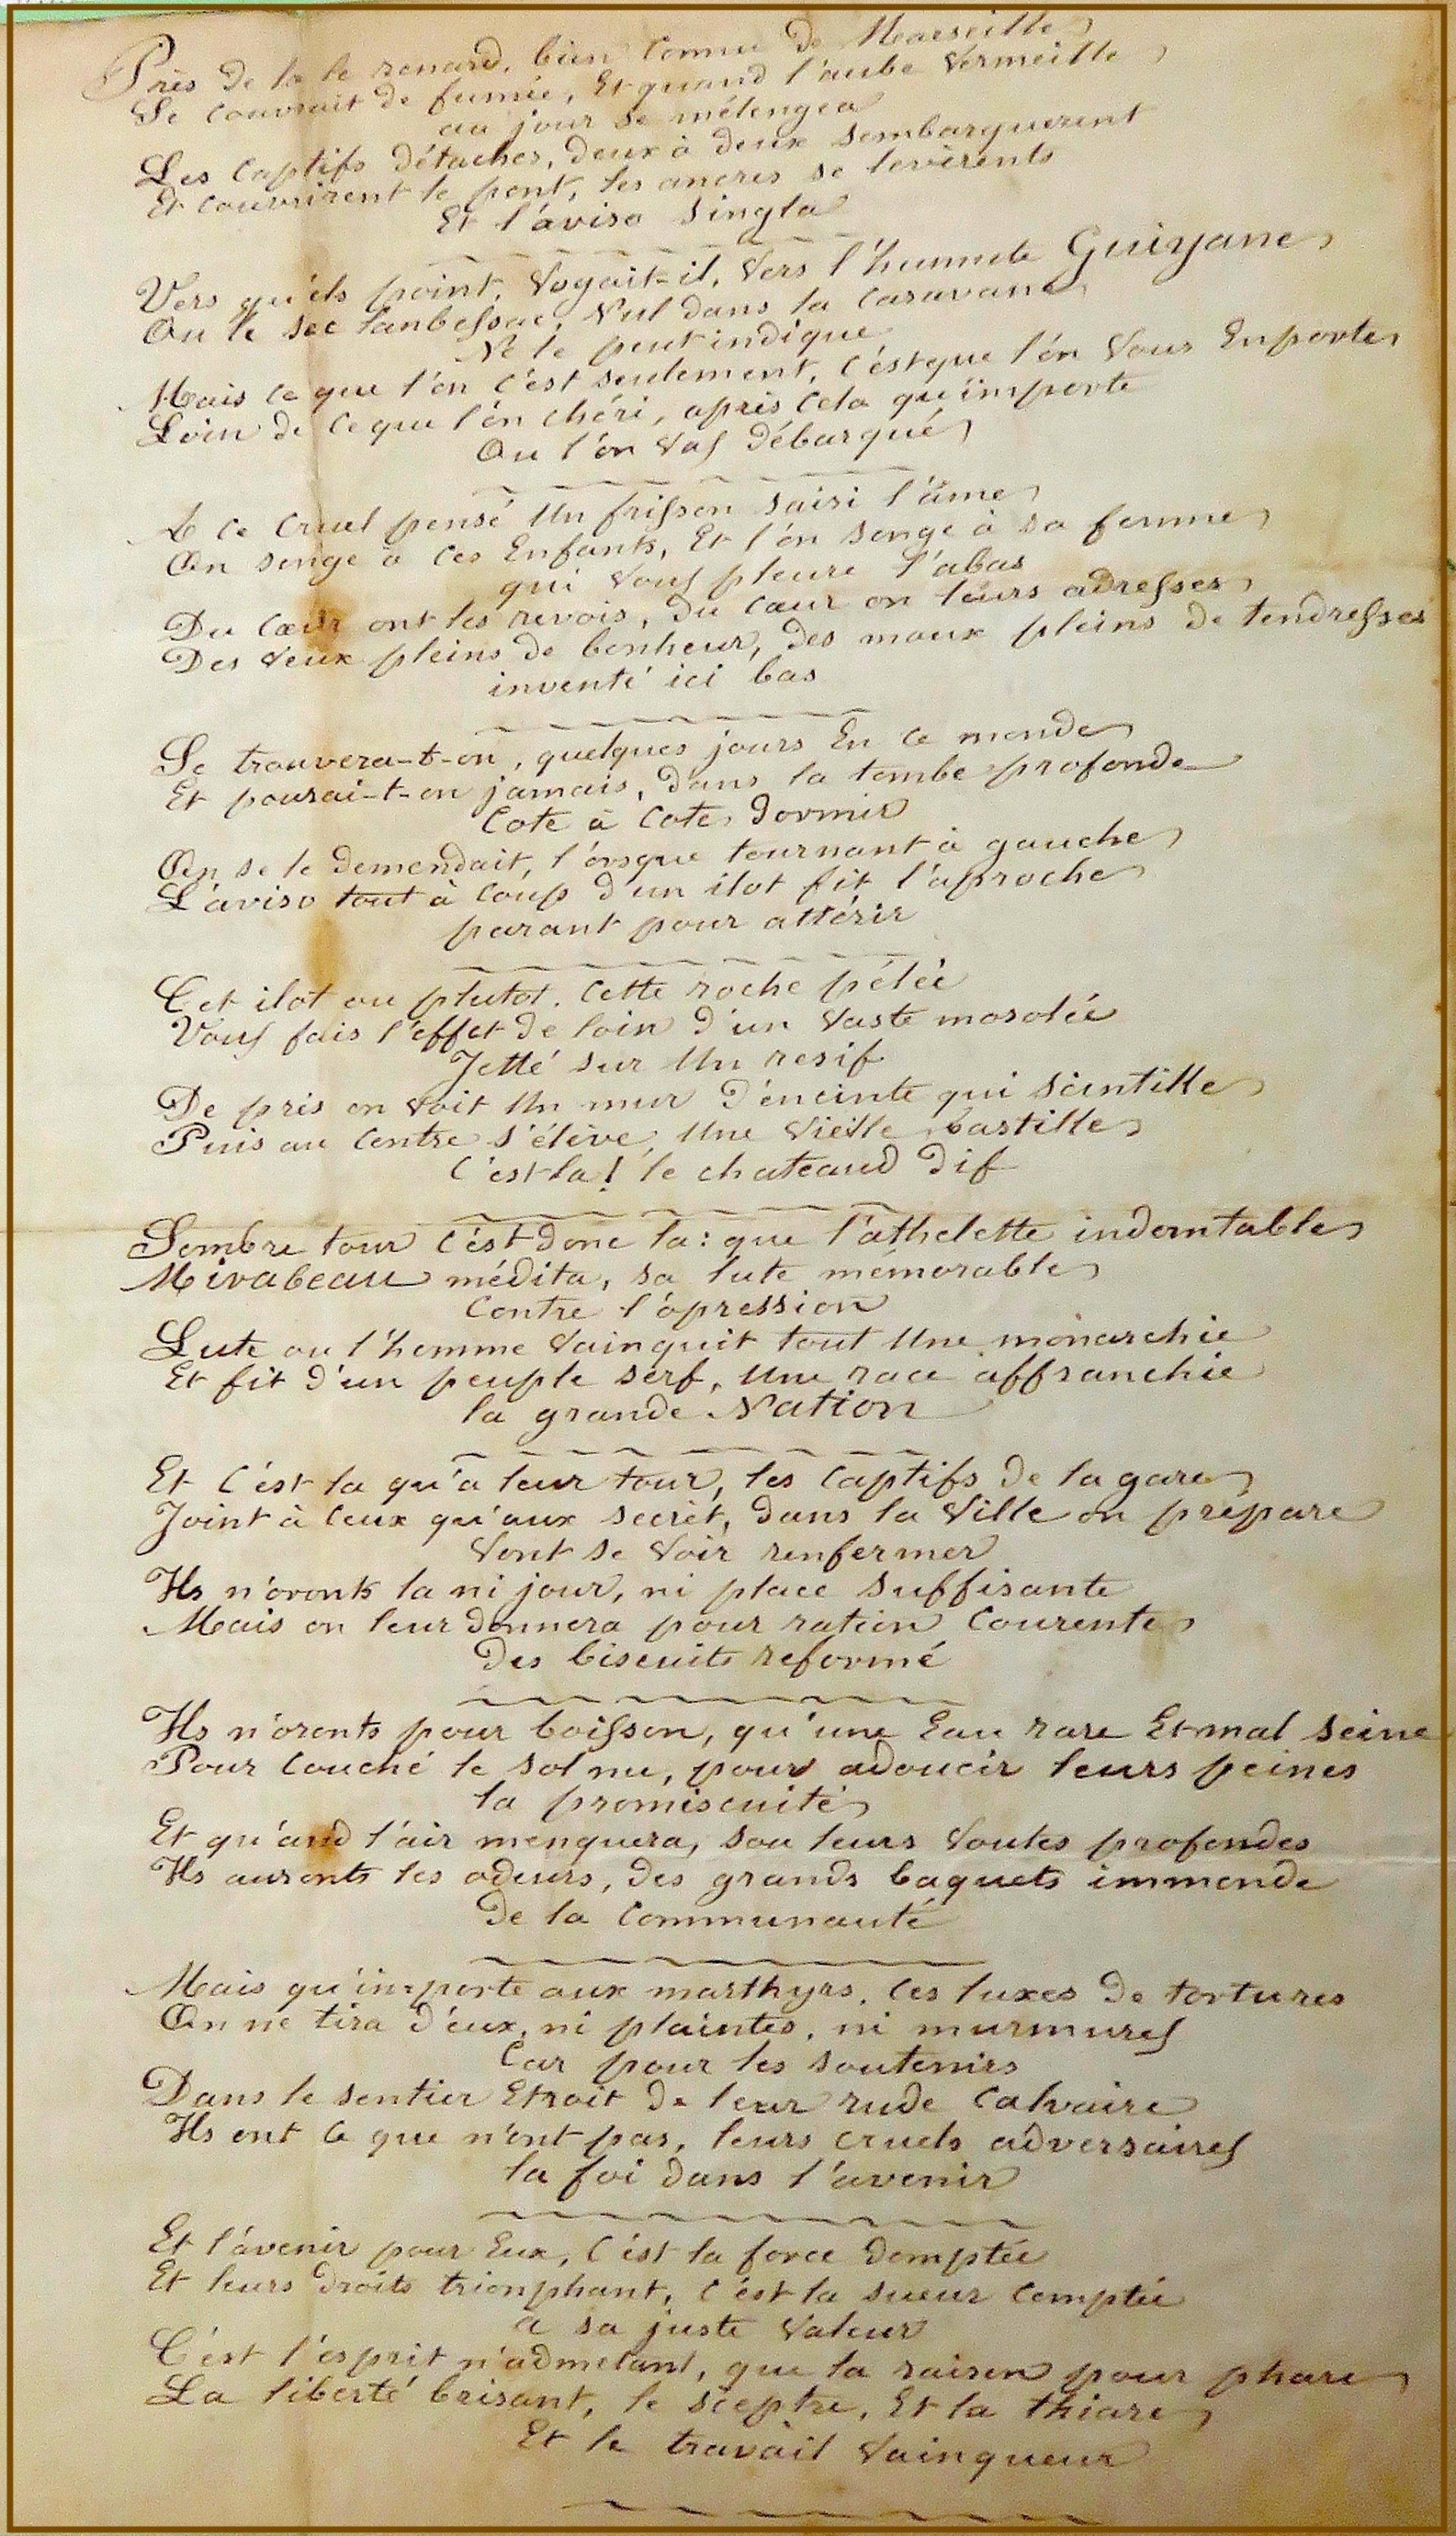 Près de la le renard, bien connu de Marseille
Se couvrait de fumée, Et quand l'aube vermeille
au jour se mélengea
Les captifs détachés, deux à deux sembarquerent
Et couvrirent le pont, les ancres se levèrents
Et l'aviso singla
Vers quels point, vogait-il, vers l'humide Guiyane
Ou le sec lanbessac, Nul dans la caravane
Ne le peut indiqué
Mais ce que l'on c'est seulement, c'est que l'ón vous Enporte
Loin de ce que l'ón chéri, après cela qu'importe
Ou l'ón vas débarqué
A ce cruel pensé Un frisson saisi l'âme
On songe à ces Enfants, Et l'ón songe à sa femme
qui vous pleure l'abas
Du cœur ont les revois, du cœur on leurs adresses
Des veux pleins de bonheur, des maux pleins de tendresses
inventé ici bas
Se trouvera-t-on, quelques jours En ce monde
Et pourai-t-on jamais, dans la tombe profonde
Cote à Cote dormir
On se le demendait, l'orsque tournant à gauche
L'aviso tout à coup d'un ilot fit l'aproche
parant pour attérir
Cet ilot ou plutot. Cette roche pélée
Vous fais l'effet de loin d'un vaste mosolée
Jetté sur Un resif
De près on voit Un mur d'éncinte qui scintille
Puis au centre s'élève, Une vieille bastille
C'est la! le chateaud dif
Sombre tour c'ést donc la: que l'athelette indomtable
Mirabeau médita, sa lute mémorable
Contre l'ópression
Lute ou l'homme vainquit tout Une monarchie
Et fit d'un peuple serf, Une race affranchie
la grande Nation
Et c'ést la qu'a leur tour, les captifs de la gare
Joint à ceux qu'aux secrèt, dans la ville on prépare
Vont se voir renfermer
Ils n'oronts la ni jour, ni place suffisante
Mais on leur donnera pour ration courente
Des biscuits reformé
Ils n'oronts pour boisson, qu'une Eau rare Et mal seine
Pour couché le sol nu, pour adoucir leurs peines
la promiscuité
Et qu'and l'air menquera, sou leurs voutes profondes
Ils auronts les odeurs, des grands baquets immonde
De la Communauté
Mais qu'importe aux marthyrs, ces luxes de tortures
On ne tira d'éux, ni plaintes, ni murmures
Car pour les soutenirs
Dans le sentier Etroit de leur rude calvaire
Ils ont ce que n'ont pas, leurs cruels adversaires
la foi dans l'avenir
Et l'ávenir pour Eux, c'ést la force domptée
Et leurs droits trionphant, c'ést la sueur comptée
a sa juste valeur
C'ést l'ésprit n'admetant, que la raison pour phare
La liberté brisant, le sceptre, Et la thiare
Et le travail vainqueur